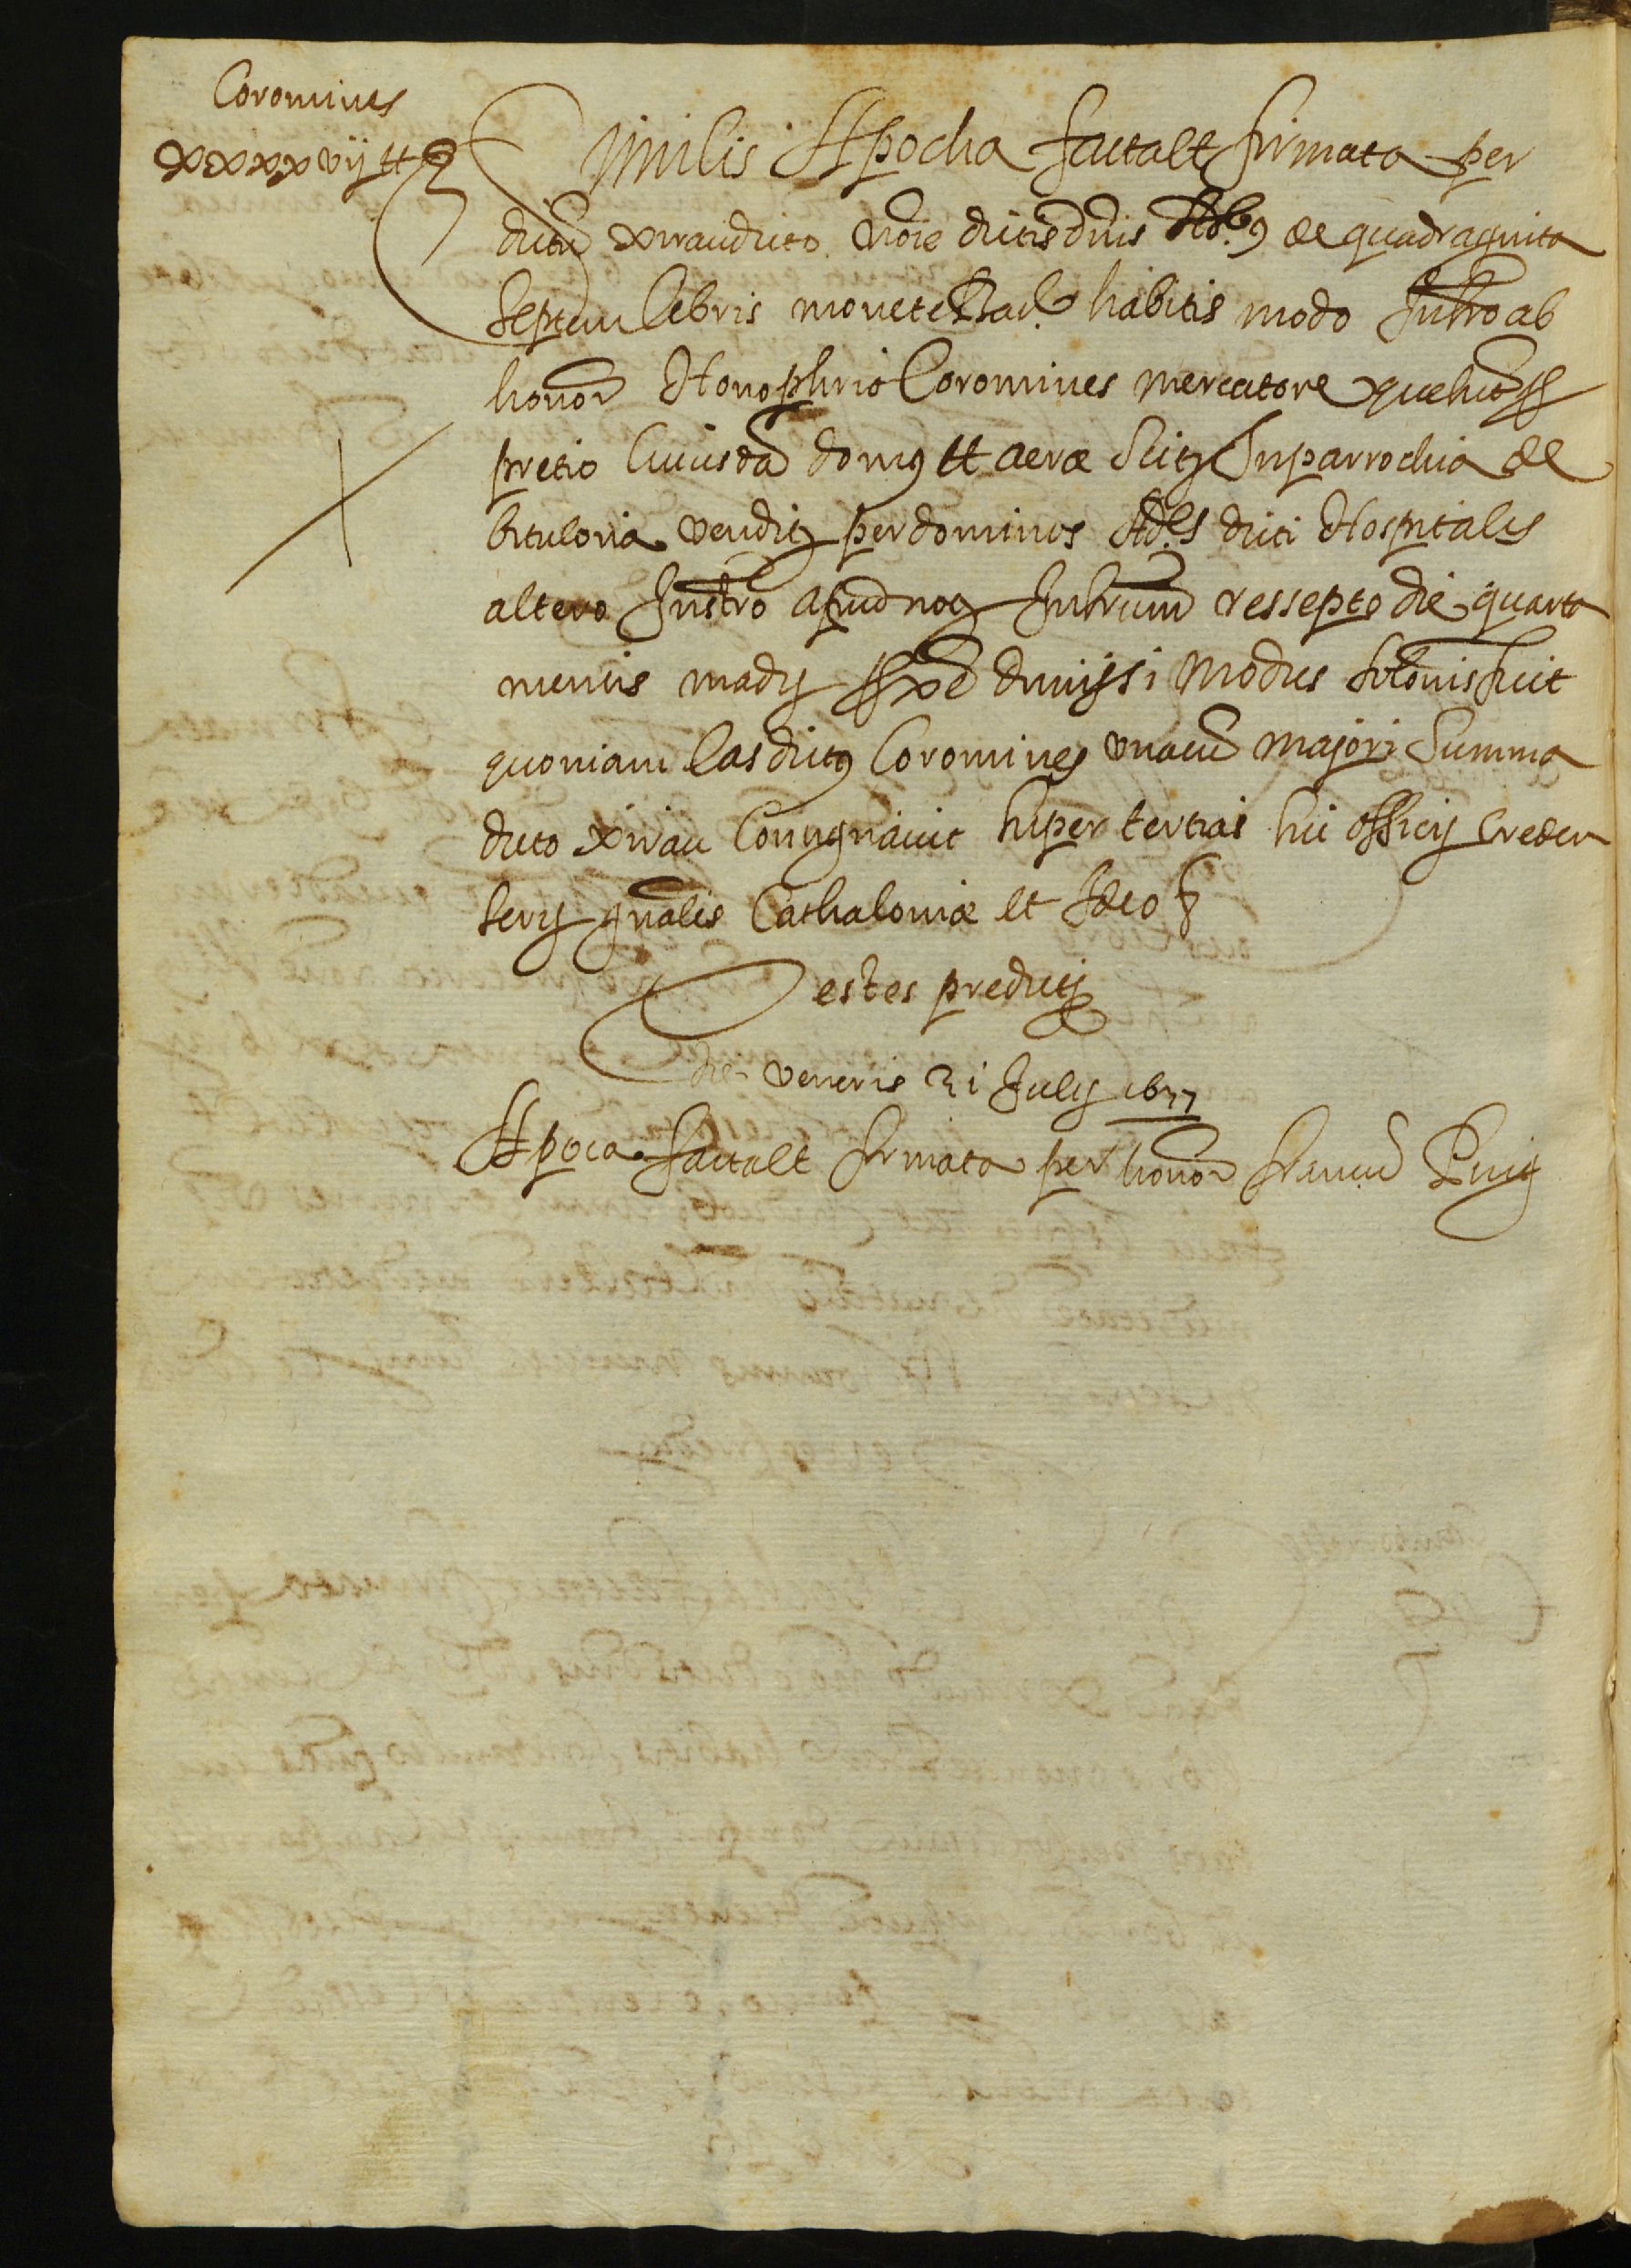 Coromines
xxxxvij tt
Similis Apocha facta et firmata per
dictũ Xirau dicto noĩe dictis dñis Adb9 de quadraginta
septem libris monete Bar.e habitis modo Infrõ ab
honor Honophrio Coromines mercatore
pretio cuiusdã domus et aerae sitȩ In parrochia de
bituloria venditȩ per dominos Ad.es dicti Hospitalis
altero Instrõ apud not Infrum ressepto die quarta
mensis madij modus solõnis fuit
quoniam eas dictus Coromines unacũ majori summa
dicto Xirau consignavit super tertias hic officij
gnãlis Cathaloniae et Ideo &
Testes predicti
die veneris 21 Julij
Apoca facta et firmata per honor francũ Puig